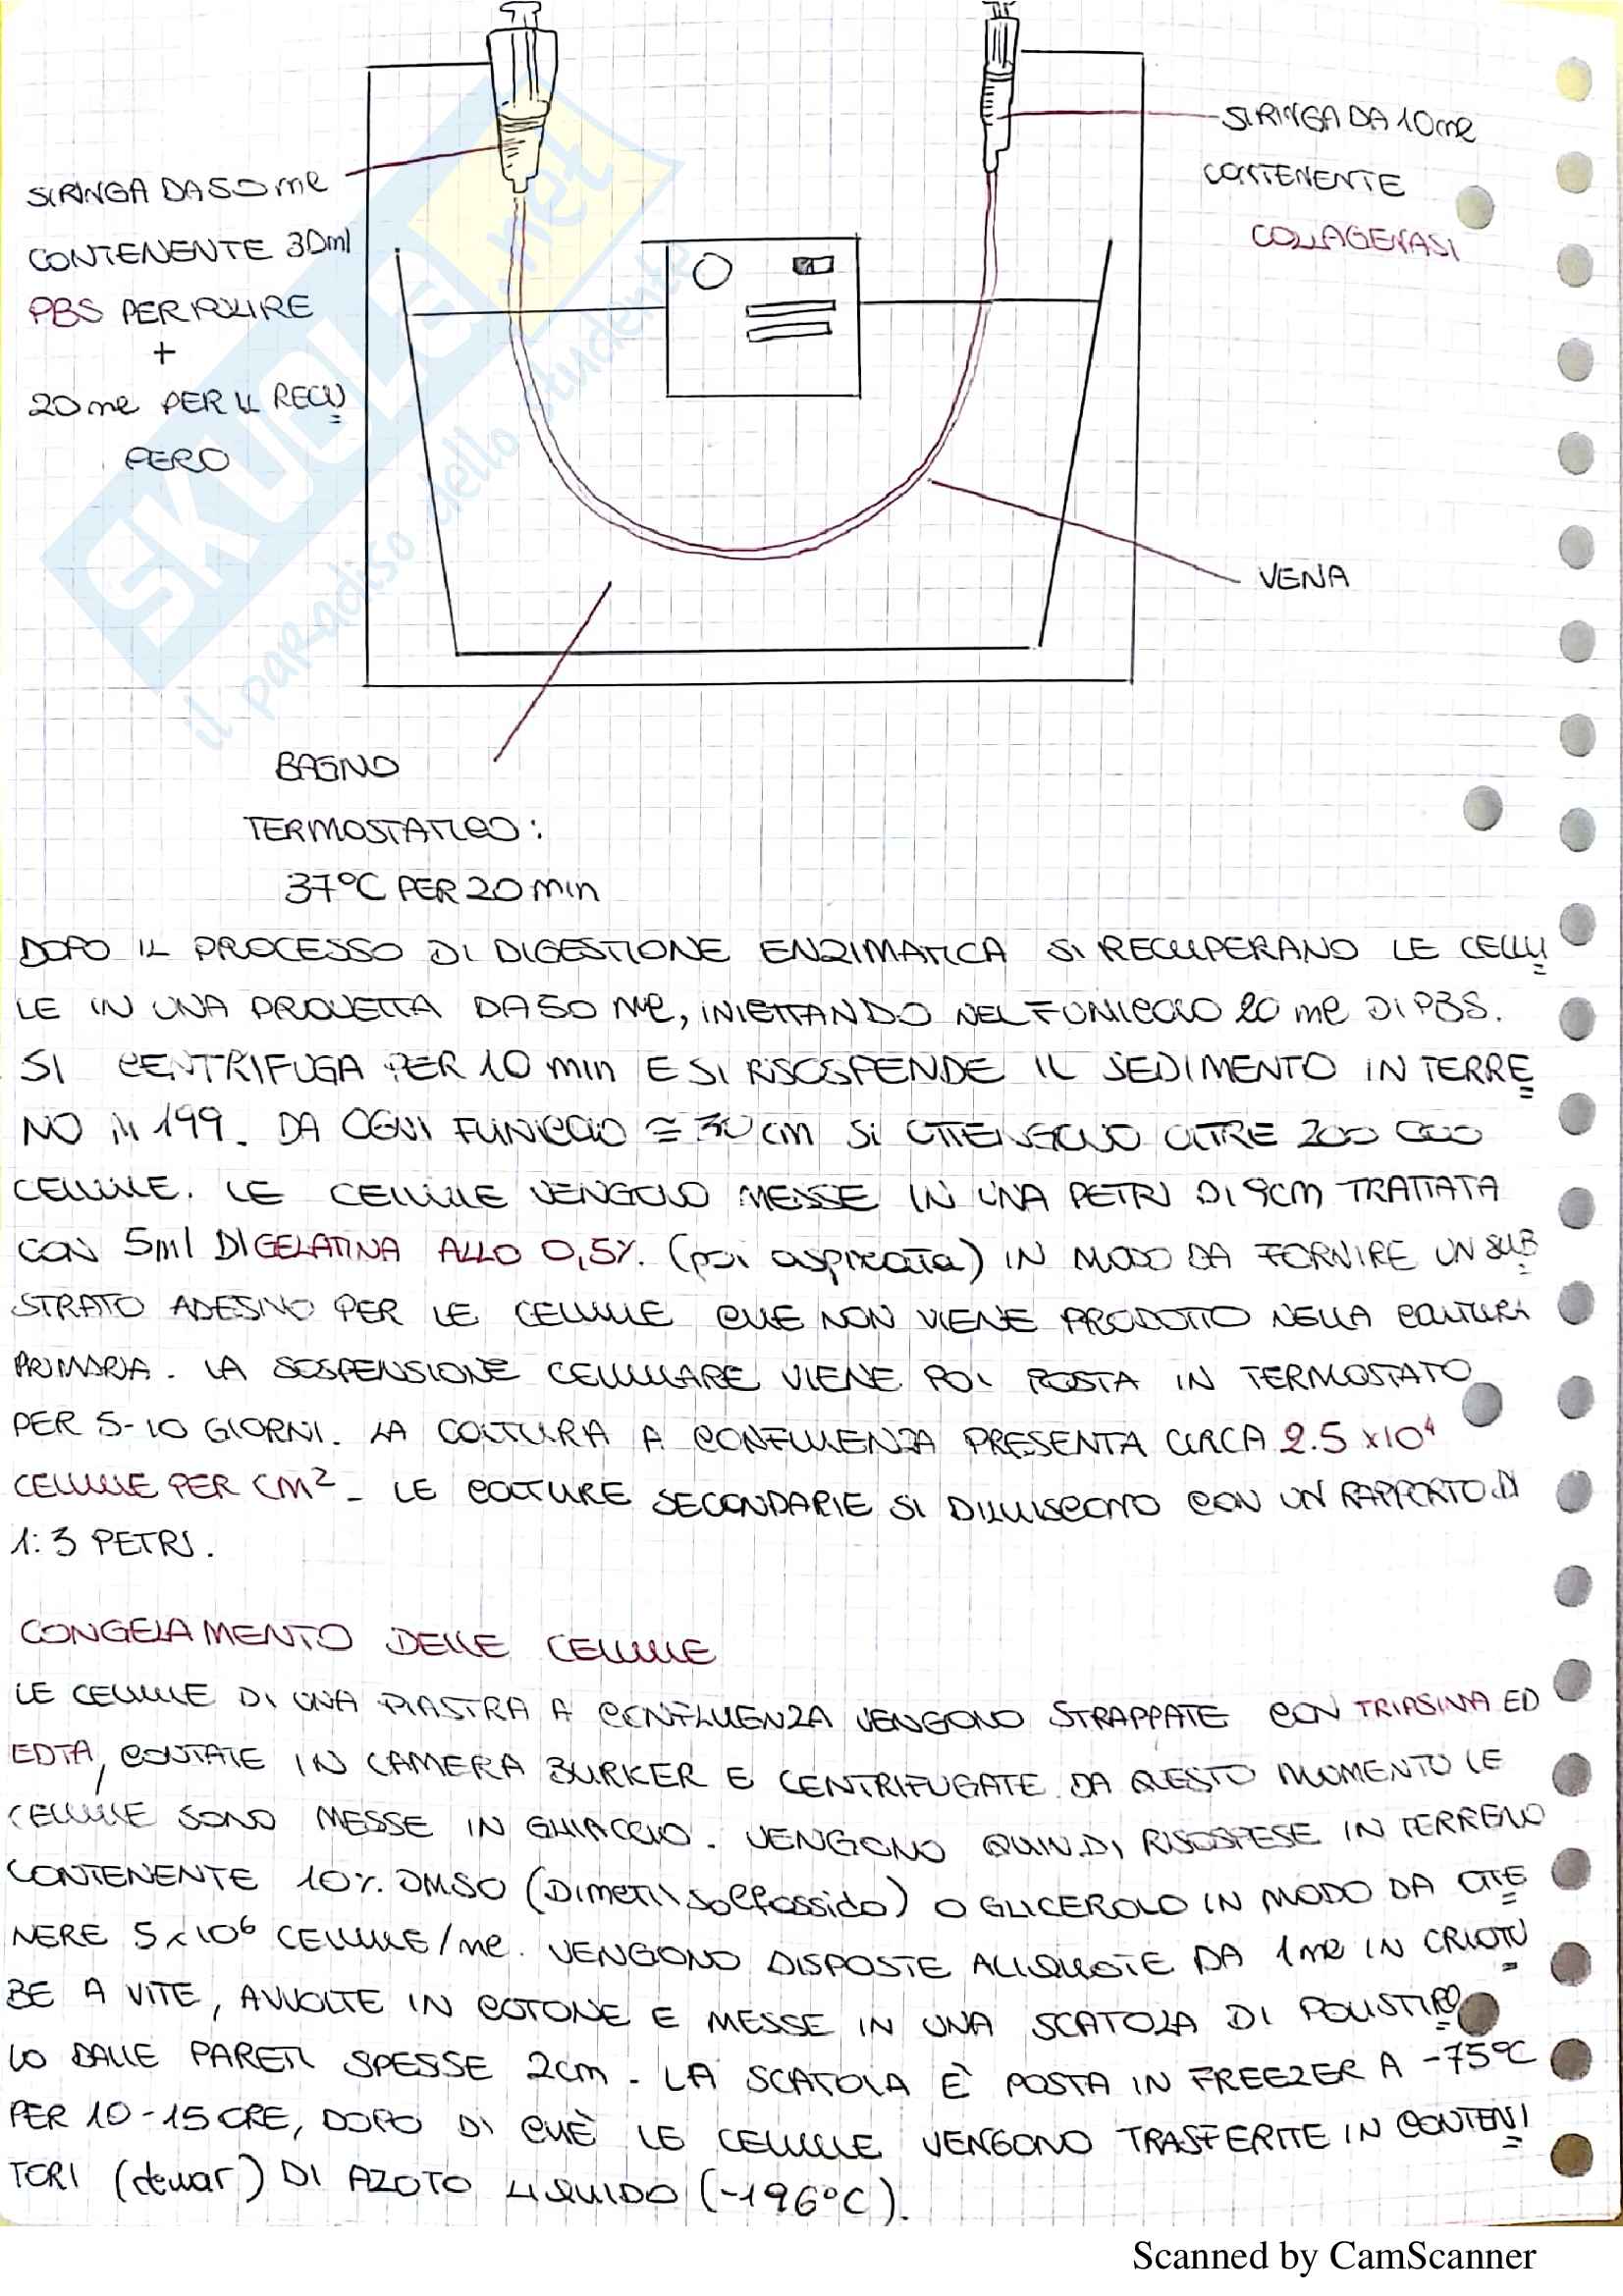 SIRINGA DA 10 ml
CONTENENTE
COLLAGENASI
SIRINGA DA 50 ml
CONTENENTE 30ml
PBS PER PULIRE
+
20 ml PER IL RECU
PERO
VENA
BAGNO
TERMOSTATICO:
37°C PER 20 min
DOPO IL PROCESSO DI DIGESTIONE ENZIMATICA SI RECUPERANO LE CELLU
LE IN UNA PROVETTA DA 50 ml, INIETTANDO NEL FUNICOLO 20 ml DI PBS.
SI CENTRIFUGA PER 10 min E SI RISOSPENDE IL SEDIMENTO IN TERRE
NO M 199. DA OGNI FUNICOLO ≅ 30 cm SI OTTENGONO OLTRE 200 000
CELLULE. LE CELLULE VENGONO MESSE IN UNA PETRI DI 9cm TRATTATA
CON 5ml DI GELATINA ALLO 0,5%. (poi aspirata) IN MODO DA FORNIRE UN SUB
STRATO ADESIVO PER LE CELLULE CHE NON VIENE PRODOTTO NELLA COLTURA
PRIMARIA. LA SOSPENSIONE CELLULARE VIENE POI POSTA IN TERMOSTATO
PER 5-10 GIORNI. LA COLTURA A CONFLUENZA PRESENTA CIRCA 2.5 x10⁴
CELLULE PER CM². LE COLTURE SECONDARIE SI DILUISCONO CON UN RAPPORTO DI
1:3 PETRI.
CONGELAMENTO DELLE CELLULE
LE CELLULE DI UNA PIASTRA A CONFLUENZA VENGONO STRAPPATE CON TRIPSINA ED
EDTA, CONTATE IN CAMERA BURKER E CENTRIFUGATE. DA QUESTO MOMENTO LE
CELLULE SONO MESSE IN GHIACCIO. VENGONO QUINDI RISOSPESE IN TERRENO
CONTENENTE 10% DMSO (Dimetil solfossido) O GLICEROLO IN MODO DA OTTE
NERE 5x10⁶ CELLULE/ml. VENGONO DISPOSTE ALIQUOTE DA 1ml IN CRIOTU
BE A VITE, AVVOLTE IN COTONE E MESSE IN UNA SCATOLA DI POLISTIRO
LO DALLE PARETI SPESSE 2cm. LA SCATOLA È POSTA IN FREEZER A -75°C
PER 10-15 ORE, DOPO DI CHÈ LE CELLULE VENGONO TRASFERITE IN CONTENI
TORI (dewar) DI AZOTO LIQUIDO (-196°C).
SKUOLA.net
il paradiso dello studente
Scanned by CamScanner